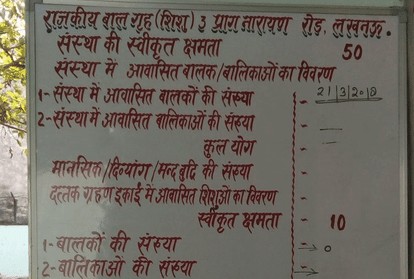 राजकीय बाल गृह (शिशु) 3 प्राग नारायण रोड, लखनऊ.
संस्था की स्वीकृत क्षमता 50
संस्था में आवासित बालक/बालिकाओं का विवरण
1- संस्था में आवासित बालकों की संख्या - 21/3/2018
2- संस्था में आवासित बालिकाओं की संख्या -
कुल योग -
मानसिक/दिव्यांग/मन्द बुद्धि की संख्या -
दत्तक ग्रहण इकाई में आवासित शिशुओं का विवरण
स्वीकृत क्षमता - 10
1- बालकों की संख्या → 0
2- बालिकाओं की संख्या →